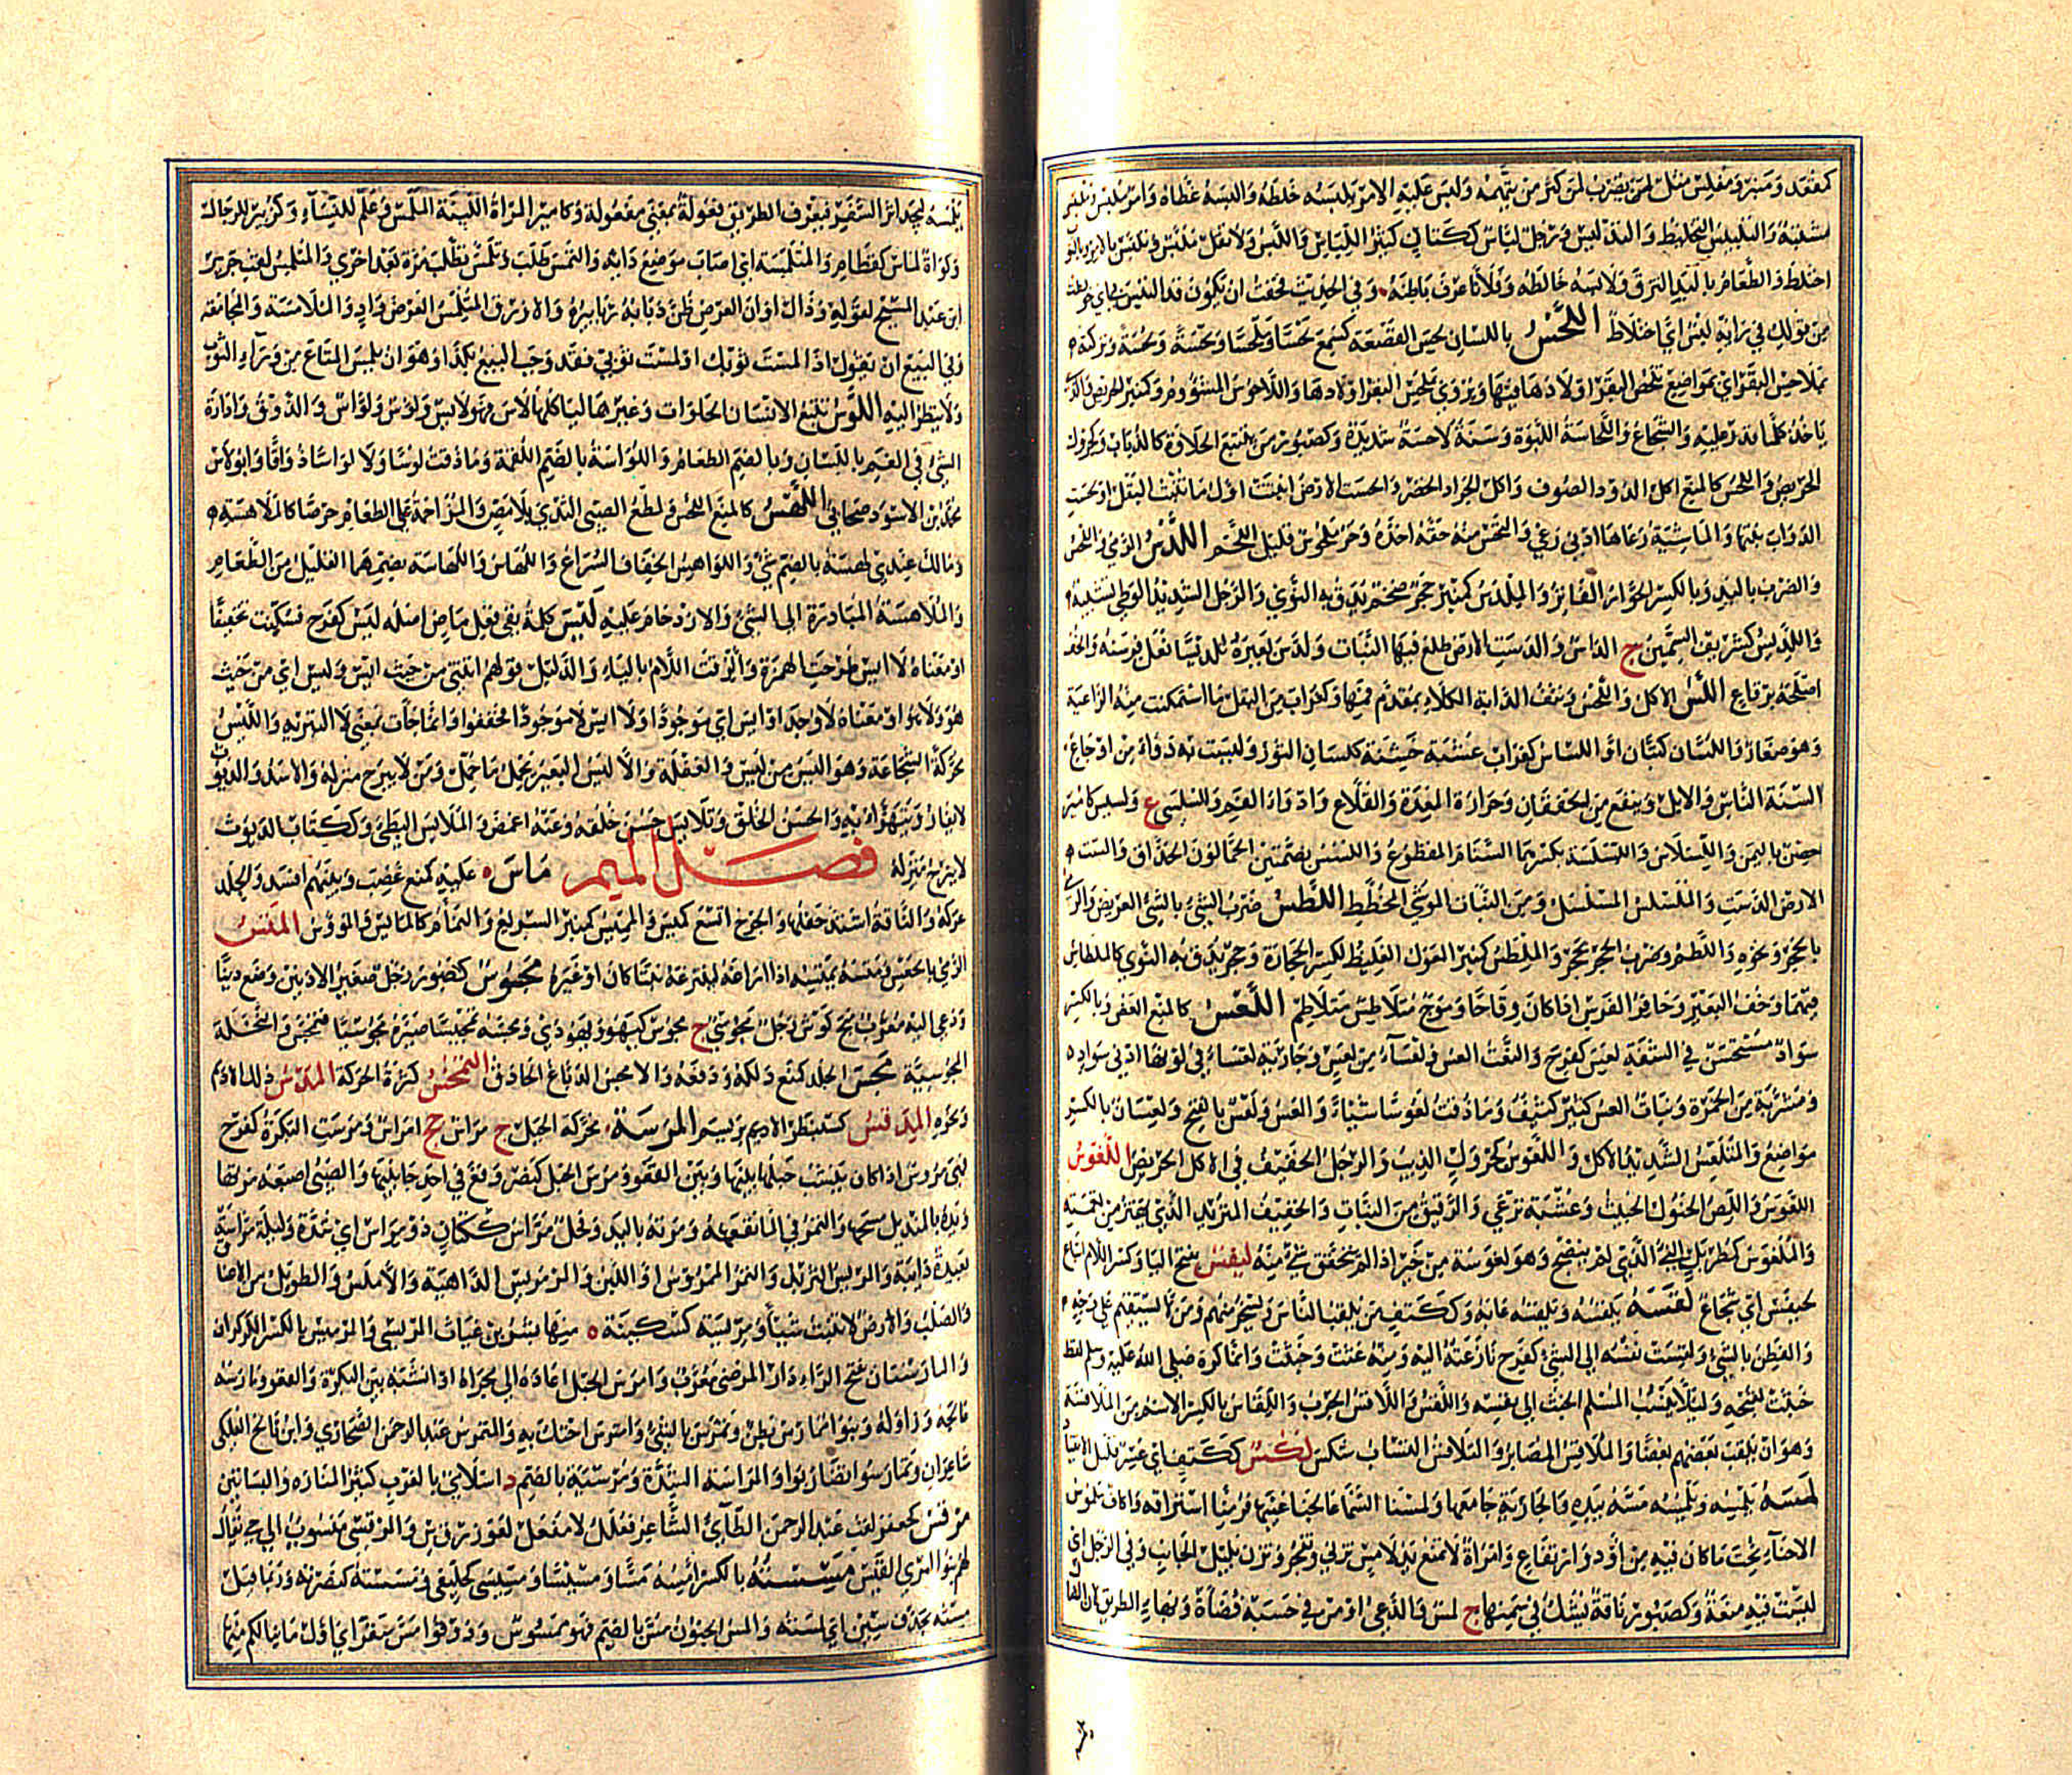 كمقعد ومنبر ومفلس مثل لمن يضرب لمن كثر من يتهمه ولبس عليه الامر يلبسه خلطه والبسه غطاه وامر ملبس وملتبس
مشتبه والتلبيس التخليط والتدليس ورجل لباس ككتان كثير اللباس واللبس ولا تقل ملبس وتلبس بالامر وبالثوب
اختلط والطعام باليد التزق ولابسه خالطه وفلانا عرف باطنه وفي الحديث فخفت ان يكون قد التبس بي اي خولطت
من قولك في رايه لبس اي اختلاط اللحس باللسان لحس القصعة كسمع لحسا وملحسا ولحسة ولحسة وتركته
بملاحس البقر اي بمواضع تلحس البقر اولادها فيها ويروى بملحس البقر اولادها واللاحوس المشؤوم وكمنبر الحريص والذي
ياخذ كلما قدر عليه والشجاع واللحاسة اللبوة وسنة لاحسة شديدة وكصبور من يتتبع الحلاوة كالذباب وكجرول
الحريص واللحس كالمنع اكل الدود الصوف واكل الجراد الخضر والحست الارض انبتت اول ما تنبت البقل او لحست
الدواب نبتها والماشية رعاها ادنى رعي والتحس منه حقه اخذه وحر ملحوس قليل اللحم اللدس الرمي واللحس
والضرب باليد وبالكسر الحوار الفاتر والملدس كمنبر حجر ضخم يدق به النوى والرجل الشديد الوطي تشبيه
واللديس كشريف السمين ج الداس والدست الارض طلع فيها النبات ولدس بعيره تلديسا نعل فرسنه والخف
اصلحه برقاع اللس الاكل واللحس ونتف الدابة الكلاء بمقدم فمها وكغراب من البقل ما استمكنت منه الراعية
وهو صغار واللسان كتبان او اللساس كغراب عشبة خشنة كلسان الثور وليست به دواء من اوجاع
السنة الناس والابل وينفع من الخفقان وحرارة المعدة والقلاع وادواء الفم والسلسى ع ولسيس كامير
حصن باليمن واللسلاس واللسلسة بكسرهما السنام المقطوع واللسس بضمتين الحمالون الحذاق والست
الارض الدست والملسلس المسلسل ومن الثياب الموشى المخطط اللطس ضرب الشيء بالشيء العريض والرمي
بالحجر ونحوه واللطم وضرب الحجر بحجر والملطس كمنبر المعول الغليظ لكسر الحجارة وحجر يدق به النوى كالملطاس
فيهما وخف البعير وحافر الفرس اذا كان وقاحا وموج متلاطس متلاطم اللعس كالمنع العض وبالكسر
سواد مستحسن في الشفة لعس كفرح والنعت العس ولعساء من لعس وجارية لعساء في لونها ادنى سواد
ومشربة من الحمرة ونبات العس كثير كثيف وما ذقت لعوسا شيئا والعس ولعس بالفتح ولعسان بالكسر
مواضع والمتلعس الشديد الاكل واللعوس كجرول الذيب والرجل الخفيف في الاكل الحريص اللغوس
اللعوس واللص الختول الخبيث وعشبة ترعى والرقيق من النبات والخفيف المتردد الذي يهتز من نعمته
والملغوس كطربال الني الذي لم ينضج وهو لغوسة من خبر اذا لم يتحقق شيء منه ليفس بفتح اليا وكسر اللام اتباع
لحيفس اي شجاع لقسه يلقسه ويلقسه عابه وككتف من يلقب الناس ويسخر منهم ومن لا يستقيم على وجه
والفطن بالشيء ولقست نفسه الى الشيء كفرح نازعته اليه ومنه غثت وخبثت وانما كره صلى الله عليه وسلم لفظ
خبثت لقبحه ولئلا ينسب المسلم الخبث الى نفسه واللقس واللاقس الجرب واللقاس بالكسر الاسم من الملاقسة
وهو ان يلقب بعضهم بعضا والملاقس المصابر والتلاقس التشاب شكس لكس ككتف اي عسر قليل الانقياد
لمسه يلمسه ويلمسه مسه بيده والجارية جامعها ولمسنا السماء عالجنا غيبها فرمنا استراقه واكاف ملموس
الاحناء نحت ما كان فيه من اود وارتفاع وامراة لا تمنع يد لامس تزني وتفجر وتزن بلين الجانب وفي الرجل اي
ليست فيه منعة وكصبور ناقة يشك في سمنها ج لمس والدعي او من في حسبه قضاة وبهاء الطريق لان الضال
د مر
يلمسه ليجد اثر السفر فيعرف الطريق فعولة بمعنى مفعولة وكامير المراة اللينة الملمس وعلم للنساء وكزبير للرجال
وكواة لماس كقطام والمتلمسة اي اصاب موضع دائه والتمس طلب وتلمس تطلب مرة بعد اخرى والمتلمس لقب جرير
ابن عبد المسيح لقوله وذاك اوان العرض طن ذبابه زنابيره والازرق المتلمس العرض واد والملامسة والمجامعة
وفي البيع ان يقول اذا لمست ثوبك او لمست ثوبي فقد وجب البيع بكذا او هو ان يلمس المتاع من وراء الثوب
ولا ينظر اليه اللوس تتبع الانسان الحلاوات وغيرها لياكلها لاس فهو لائس ولووس ولواس والذوق وادارة
الشيء في الفم باللسان وبالضم الطعام واللواسة بالضم اللقمة وما ذقت لوسا ولا لواسا ذواقا وابو لاس
محمد بن الاسود صحابي اللهس كالمنع اللحس ولطع الصبي الثدي بلا مص والمزاحمة على الطعام حرصا كالملاهسة
ومالك عندي لهسة بالضم شيء واللواهس الخفاف السراع واللهاس واللهاسة بضمهما القليل من الطعام
والملاهسة المبادرة الى الشيء والازدحام عليه ليس كلمة نفي فعل ماض اصله ليس كفرح فسكنت تخفيفا
او معناه لا ايس طرحت الهمزة والزقت اللام بالياء والدليل قولهم ائتني من حيث ايس وليس اي من حيث
هو ولا هو او معناه لا وجد او ايس اي موجود ولا ايس لا موجود فخففوا وانما جات بمعنى لا التبرية والليس
محركة الشجاعة وهو اليس من ليس والغفلة والاليس البعير يحمل ما حمل ومن لا يبرح منزله والاسد والديوث
لا يغار ويتهزا به والحسن الخلق وتلايس حسن خلقه وعنه اغمض والملايس البطي وككتاب الديوث
لا يبرح منزله فصل الميم ماس عليه كمنع غضب وبينهم افسد والجلد
عركه والناقة اشتد حفلها والجرح اتسع كمئس والمئس كمنبر السريع والنمام كالمائس والمؤوس المتس
الرمي بالجعس ومتسه يمتسه اذا اراغه لينزعه نبتا كان او غيره مجوس كصبور رجل صغير الاذنين وضع دينا
ودعى اليه معرب منج كوش رجل مجوسي ج مجوس كيهود ويهودي ومجسه تمجيسا صيره مجوسيا فتمجس والنحلة
المجوسية محس الجلد كمنع دلكه ودفعه والامحس الدباغ الحاذق التمخس كثرة الحركة المدس دلك الاديم
ونحوه المدقس كسبطر الابريسم المرسة محركة الحبل ج مرس جج امراس ومرست البكرة كفرح
فهي مروس اذا كان ينشب حبلها بينها وبين القعو ومرس الحبل كنصر وقع في احد جانبيها والصبي اصبعه مرثها
ويده بالمنديل مسحها والتمر في الماء نقعه ومرثه باليد وفحل مراس ككتان ذو مراس اي شدة وليلة مراسة
بعيدة دائبة والمريس الثريد والتمر الممروس او اللبن والمرمريس الداهية والاملس والطويل من الاعناق
والصلب والارض لا تنبت شيئا ومريسة كسكينة ة منها بشر بن غياث المريسي والمرميس بالكسر الكركدن
والمارستان بفتح الراء دار المرضى معرب وامرس الحبل اعاده الى مجراه اذا انشبه بين البكرة والقعو ومارسه
عالجه وزاوله وبنو ممارس بطن وتمرس بالشيء وامترس احتك به والمتمرس عبد الرحمن الصحاري وابن فالح العكلي
شاعران وتمارسوا تضاربوا والمراسة الشدة ومرسية بالضم د اسلامي بالغرب كثير المنازه والبساتين
مرقس كجعفر لقب عبد الرحمن الطائي الشاعر فعلل لا مفعل لعوز رقس والمرقسي منسوب الى حي يقال
لهم بنو امرئ القيس مسسته بالكسر امسه مسا ومسيسا ومسيسى كخليفى ومسسته كنصرته وربما قيل
مسته بحذف سين اي لمسته والمس الجنون مس بالضم فهو ممسوس وذوقوا مس سقر اي اول ما ينالكم منها